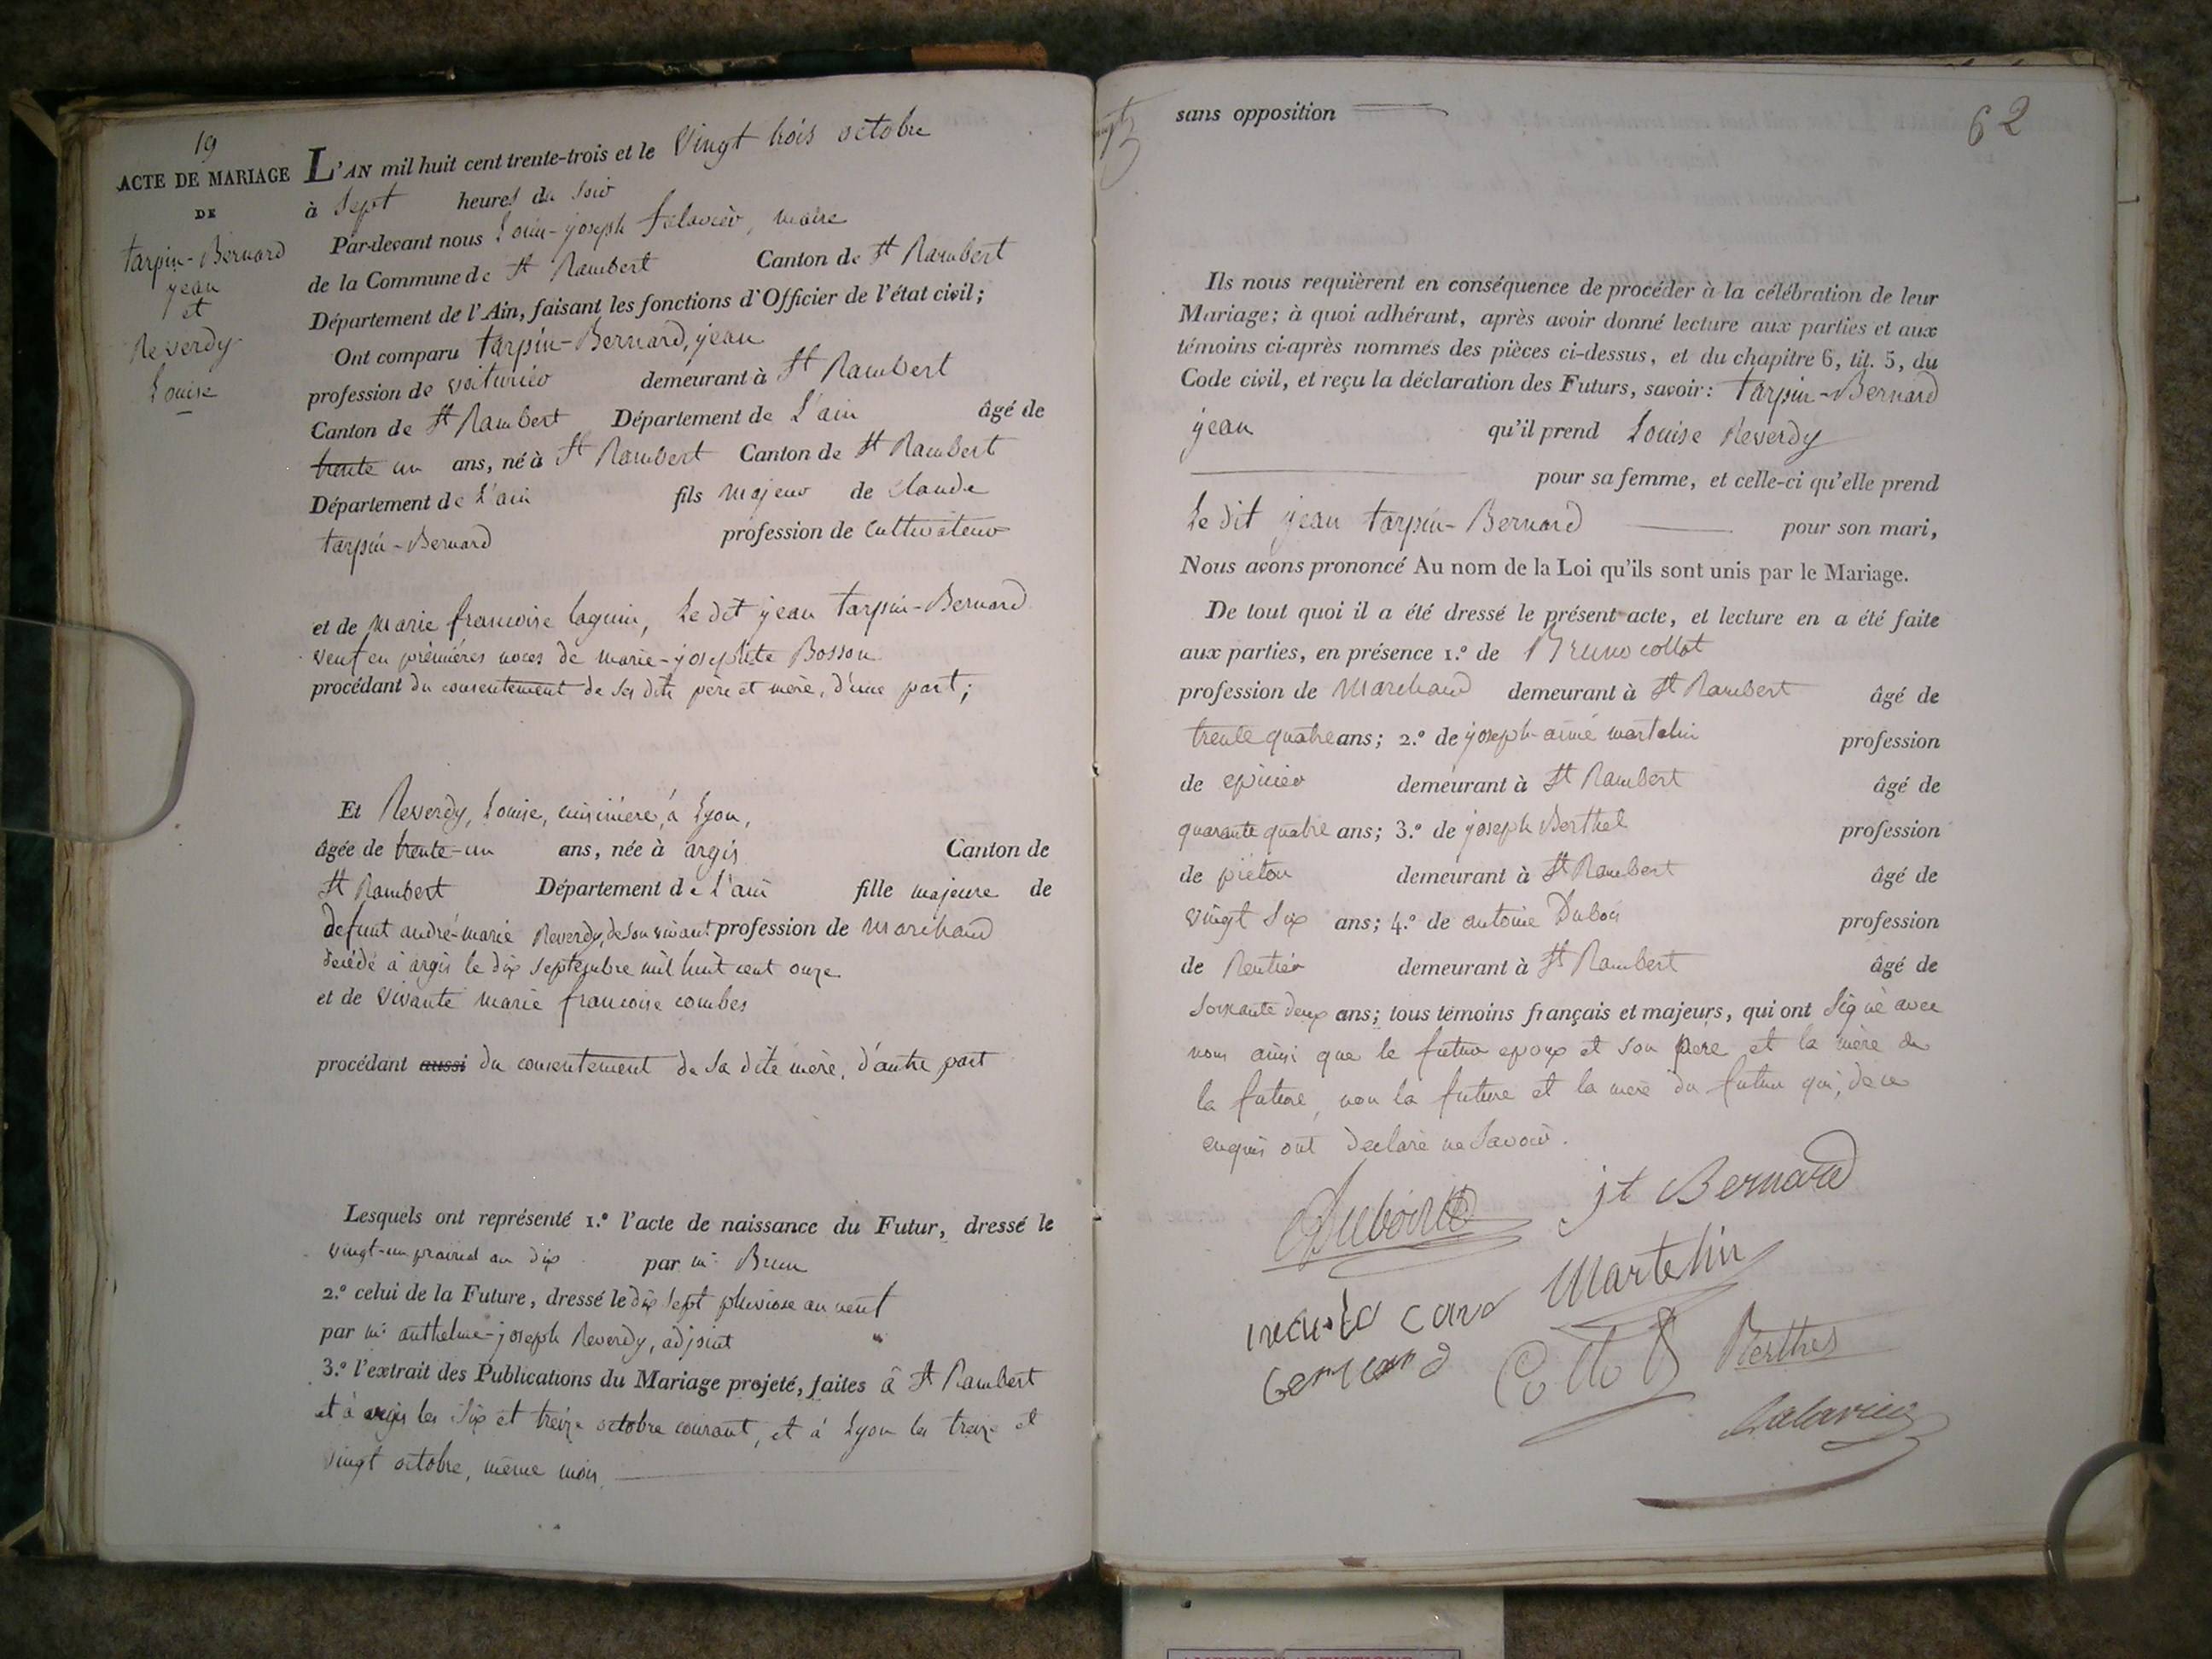 19
ACTE DE MARIAGE
DE
tarpin-Bernard
jean
et
Reverdy
Louise
L'AN mil huit cent trente-trois et le vingt trois octobre
à sept heures du soir
Par-devant nous Louis-joseph , maire
de la Commune de St Rambert Canton de St Rambert
Département de l'Ain, faisant les fonctions d'Officier de l'état civil;
Ont comparu tarpin-Bernard, jean
profession de voiturier demeurant à St Rambert
Canton de St Rambert Département de L'ain âgé de
trente un ans, né à St Rambert Canton de St Rambert
Département de L'ain fils majeur de claude
tarpin-Bernard profession de cultivateur
et de marie francoise laguin, Le dit jean tarpin-Bernard
veuf en prèmiéres noces de marie-josephte Bosson
procédant du consentement de ses dits père et mère, d'une part;
Et Reverdy, Louise, cuisiniére, à Lyon,
âgée de trente-un ans, née à argis Canton de
St Rambert Département de L'ain fille majeure de
defunt andré-marie Reverdy, de son vivant profession de marchand
decédé à argis le dix septembre mil huit cent onze
et de vivante marie francoise combes
procédant aussi du consentement de sa dite mère, d'autre part
Lesquels ont représenté 1.º l'acte de naissance du Futur, dressé le
vingt-un prairial an dix par mr Brun
2.º celui de la Future, dressé le dix sept pluviose an neuf
par mr anthelme-joseph Reverdy, adjoint
3.º l'extrait des Publications du Mariage projeté, faites à St Rambert
et à argis les six et treize octobre courant, et à Lyon les treize et
vingt octobre, même mois.
sans opposition
62
Ils nous requièrent en conséquence de procéder à la célébration de leur
Mariage; à quoi adhérant, après avoir donné lecture aux parties et aux
témoins ci-après nommés des pièces ci-dessus, et du chapitre 6, tit. 5, du
Code civil, et reçu la déclaration des Futurs, savoir: tarpin-Bernard
jean qu'il prend Louise Reverdy
pour sa femme, et celle-ci qu'elle prend
Le dit jean tarpin-Bernard pour son mari,
Nous avons prononcé Au nom de la Loi qu'ils sont unis par le Mariage.
De tout quoi il a été dressé le présent acte, et lecture en a été faite
aux parties, en présence 1.º de Bruno collot
profession de Marchand demeurant à St Rambert âgé de
trente quatre ans; 2.º de joseph-aimé martelin profession
de epicier demeurant à St Rambert âgé de
quarante quatre ans; 3.º de joseph Berthet profession
de piéton demeurant à St Rambert âgé de
vingt six ans; 4.º de antoine Dubois profession
de Rentier demeurant à St Rambert âgé de
soixante deux ans; tous témoins français et majeurs, qui ont signé avec
nous ainsi que le futur epoux et son père et la mère de
la future, non la future et la mere du futur qui, de ce
enquis ont declaré ne savoir.
Dubois
jt Bernard
Martelin
Collot
Berthet